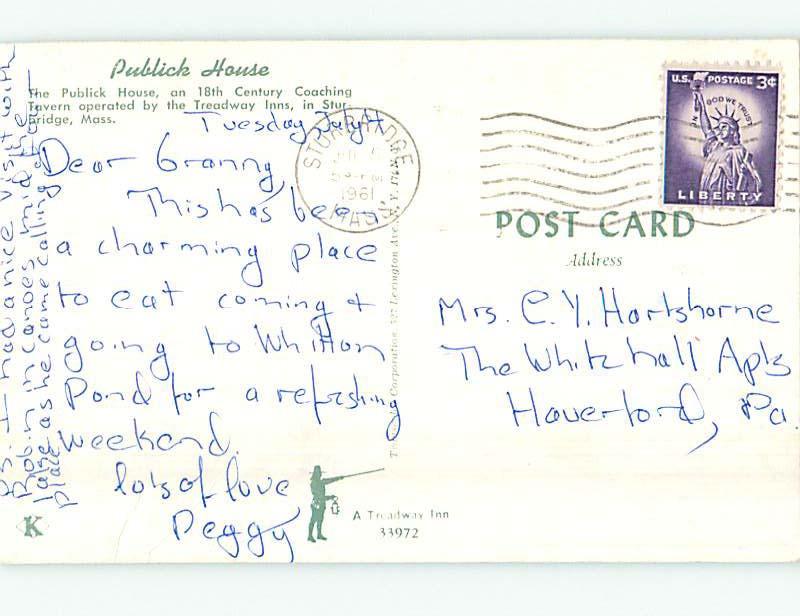 Publick House
The Publick House, an 18th Century Coaching
Tavern operated by the Treadway Inns, in Stur-
bridge, Mass.
Tuesday, July 4
Dear Granny,
This has been
a charming place
to eat coming +
going to Whitton
Pond for a refreshing
weekend.
lots of love
Peggy
P.S. I had a nice visit with
Robin in canoes mid the
lake as he came calling
place
K
A Treadway Inn
33972
STURBRIDGE
1961
MASS.
Corporation, 397 Lexington Ave., N. Y.
U.S. POSTAGE 3¢
IN GOD WE TRUST
LIBERTY
POST CARD
Address
Mrs. C. Y. Hartshorne
The Whitehall Apts
Haverford, Pa.